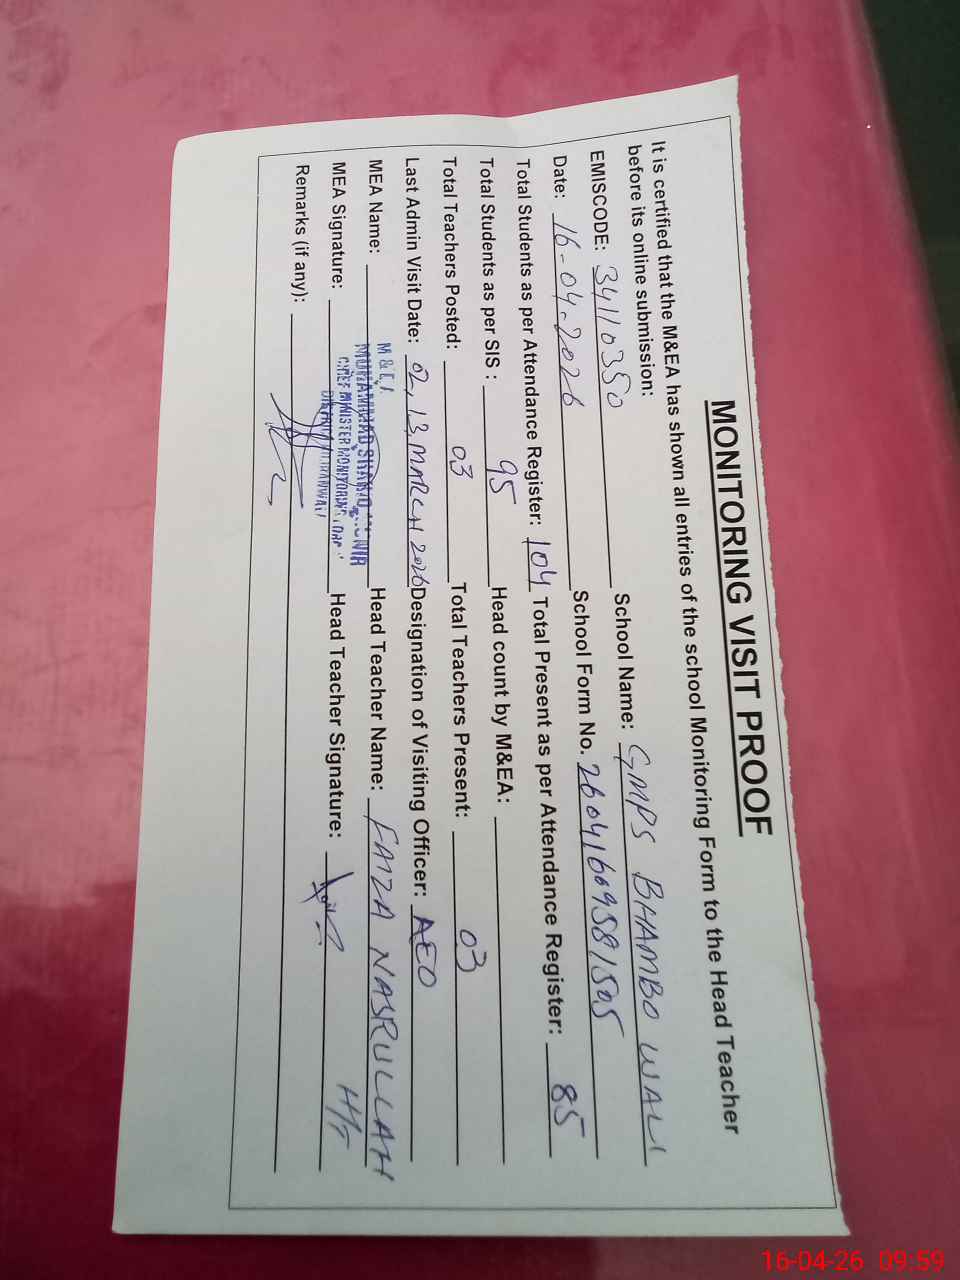 MONITORING VISIT PROOF
It is certified that the M&EA has shown all entries of the school Monitoring Form to the Head Teacher
before its online submission:
EMISCODE: 34110350 School Name: GMPS BHAMBO WALI
Date: 16-04-2026 School Form No. 26041609581505
Total Students as per Attendance Register: 104 Total Present as per Attendance Register: 85
Total Students as per SIS : 95 Head count by M&EA:
Total Teachers Posted: 03 Total Teachers Present: 03
Last Admin Visit Date: 02, 13, MARCH 2026 Designation of Visiting Officer: AEO
MEA Name: Head Teacher Name: FAIZA NASRULLAH
M & E A
MUHAMMAD
CHIEF MINISTER MONITORING
MEA Signature: Head Teacher Signature: H/T
Remarks (if any):
16-04-26 09:59